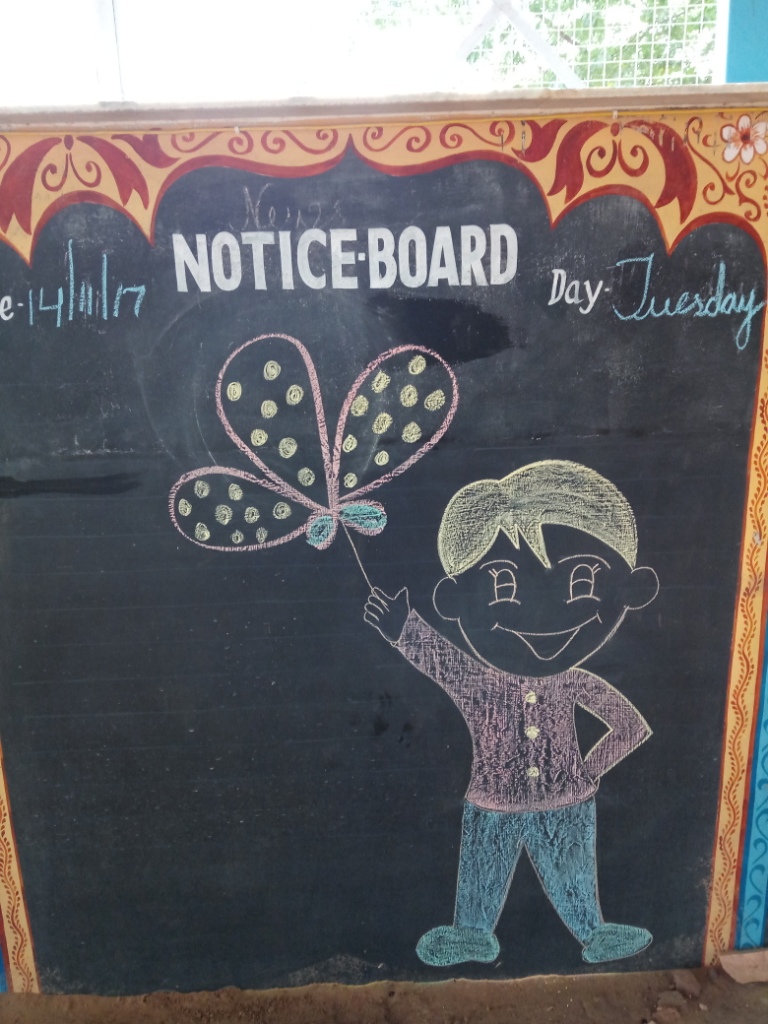 NOTICE-BOARD
e-14/11/17
Day-Tuesday